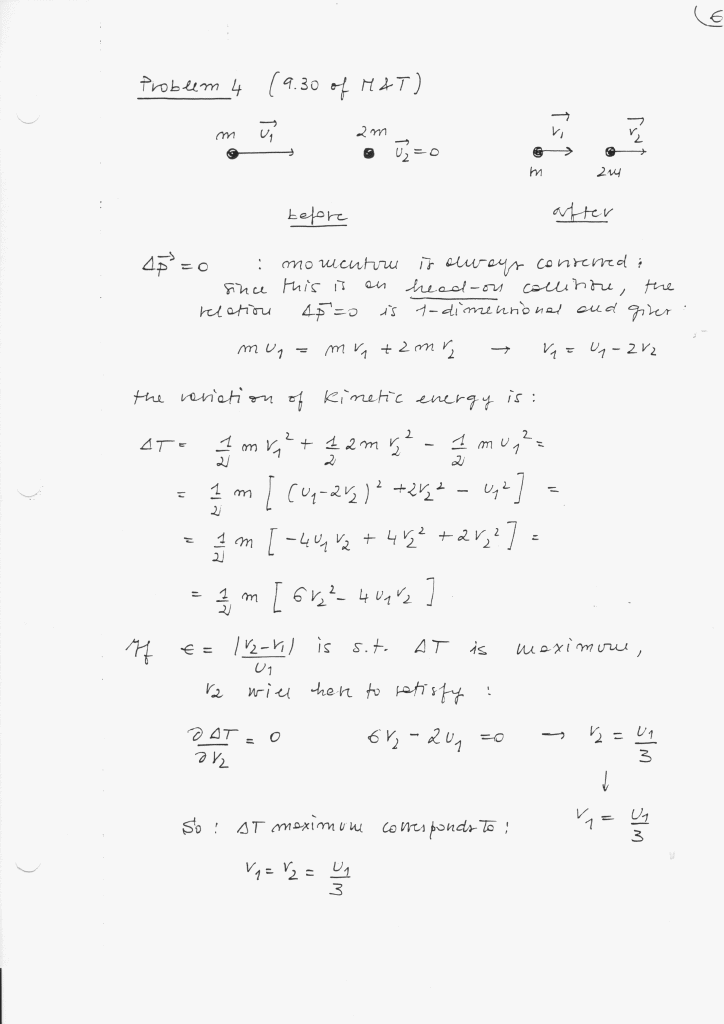 (6
Problem 4 (9.30 of M&T)
m u⃗₁ 2m u⃗₂=0 v⃗₁ v⃗₂
m 2m
before after
Δp⃗ = 0 : momentum is always conserved ;
since this is an head-on collision, the
relation Δp⃗=0 is 1-dimensional and gives
m u₁ = m v₁ + 2m v₂ → v₁ = u₁ - 2v₂
the variation of kinetic energy is :
ΔT = 1/2 m v₁² + 1/2 2m v₂² - 1/2 m u₁² =
= 1/2 m [ (u₁-2v₂)² +2v₂² - u₁² ] =
= 1/2 m [ -4u₁v₂ + 4v₂² + 2v₂² ] =
= 1/2 m [ 6v₂² - 4u₁v₂ ]
If ϵ = |v₂-v₁|/u₁ is s.t. ΔT is maximum,
v₂ will have to satisfy :
∂ΔT/∂v₂ = 0 6v₂ - 2u₁ = 0 → v₂ = u₁/3
↓
So : ΔT maximum corresponds to : v₁ = u₁/3
v₁ = v₂ = u₁/3